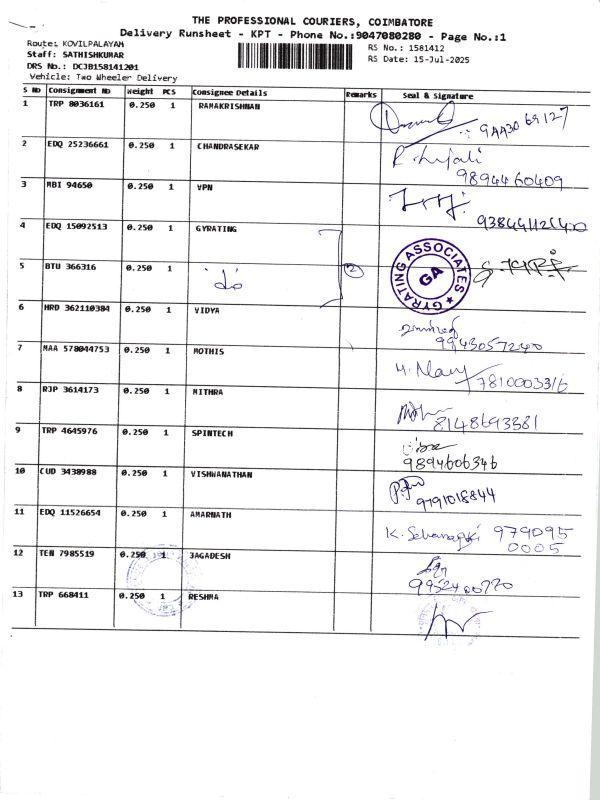 THE PROFESSIONAL COURIERS, COIMBATORE
Delivery Runsheet - KPT - Phone No.:9047080280 - Page No.:1
Route: KOVILPALAYAM
Staff: SATHISHKUMAR
DRS No.: DCJB158141201
Vehicle: Two Wheeler Delivery
RS No.: 1581412
RS Date: 15-Jul-2025
S No Consignment No Weight PCS Consignee Details Remarks Seal & Signature
1 TRP 8036161 0.250 1 RAMAKRISHNAN
2 EDQ 25236661 0.250 1 CHANDRASEKAR 9894460409
3 MBI 94650 0.250 1 VPN
4 EDQ 15092513 0.250 1 GYRATING
GYRATING ASSOCIATES
GA
5 BTU 366316 0.250 1 do 2
6 HRD 362110384 0.250 1 VIDYA 9943057240
7 MAA 578044753 0.250 1 MOTHIS 7810003316
8 RJP 3614173 0.250 1 MITHRA 8148693381
9 TRP 4645976 0.250 1 SPINTECH 9894606346
10 CUD 3438988 0.250 1 VISHWANATHAN 9791018844
11 EDQ 11526654 0.250 1 AMARNATH 979095
0005
12 TEN 7985519 0.250 1 JAGADESH 9952400770
13 TRP 668411 0.250 1 RESHMA